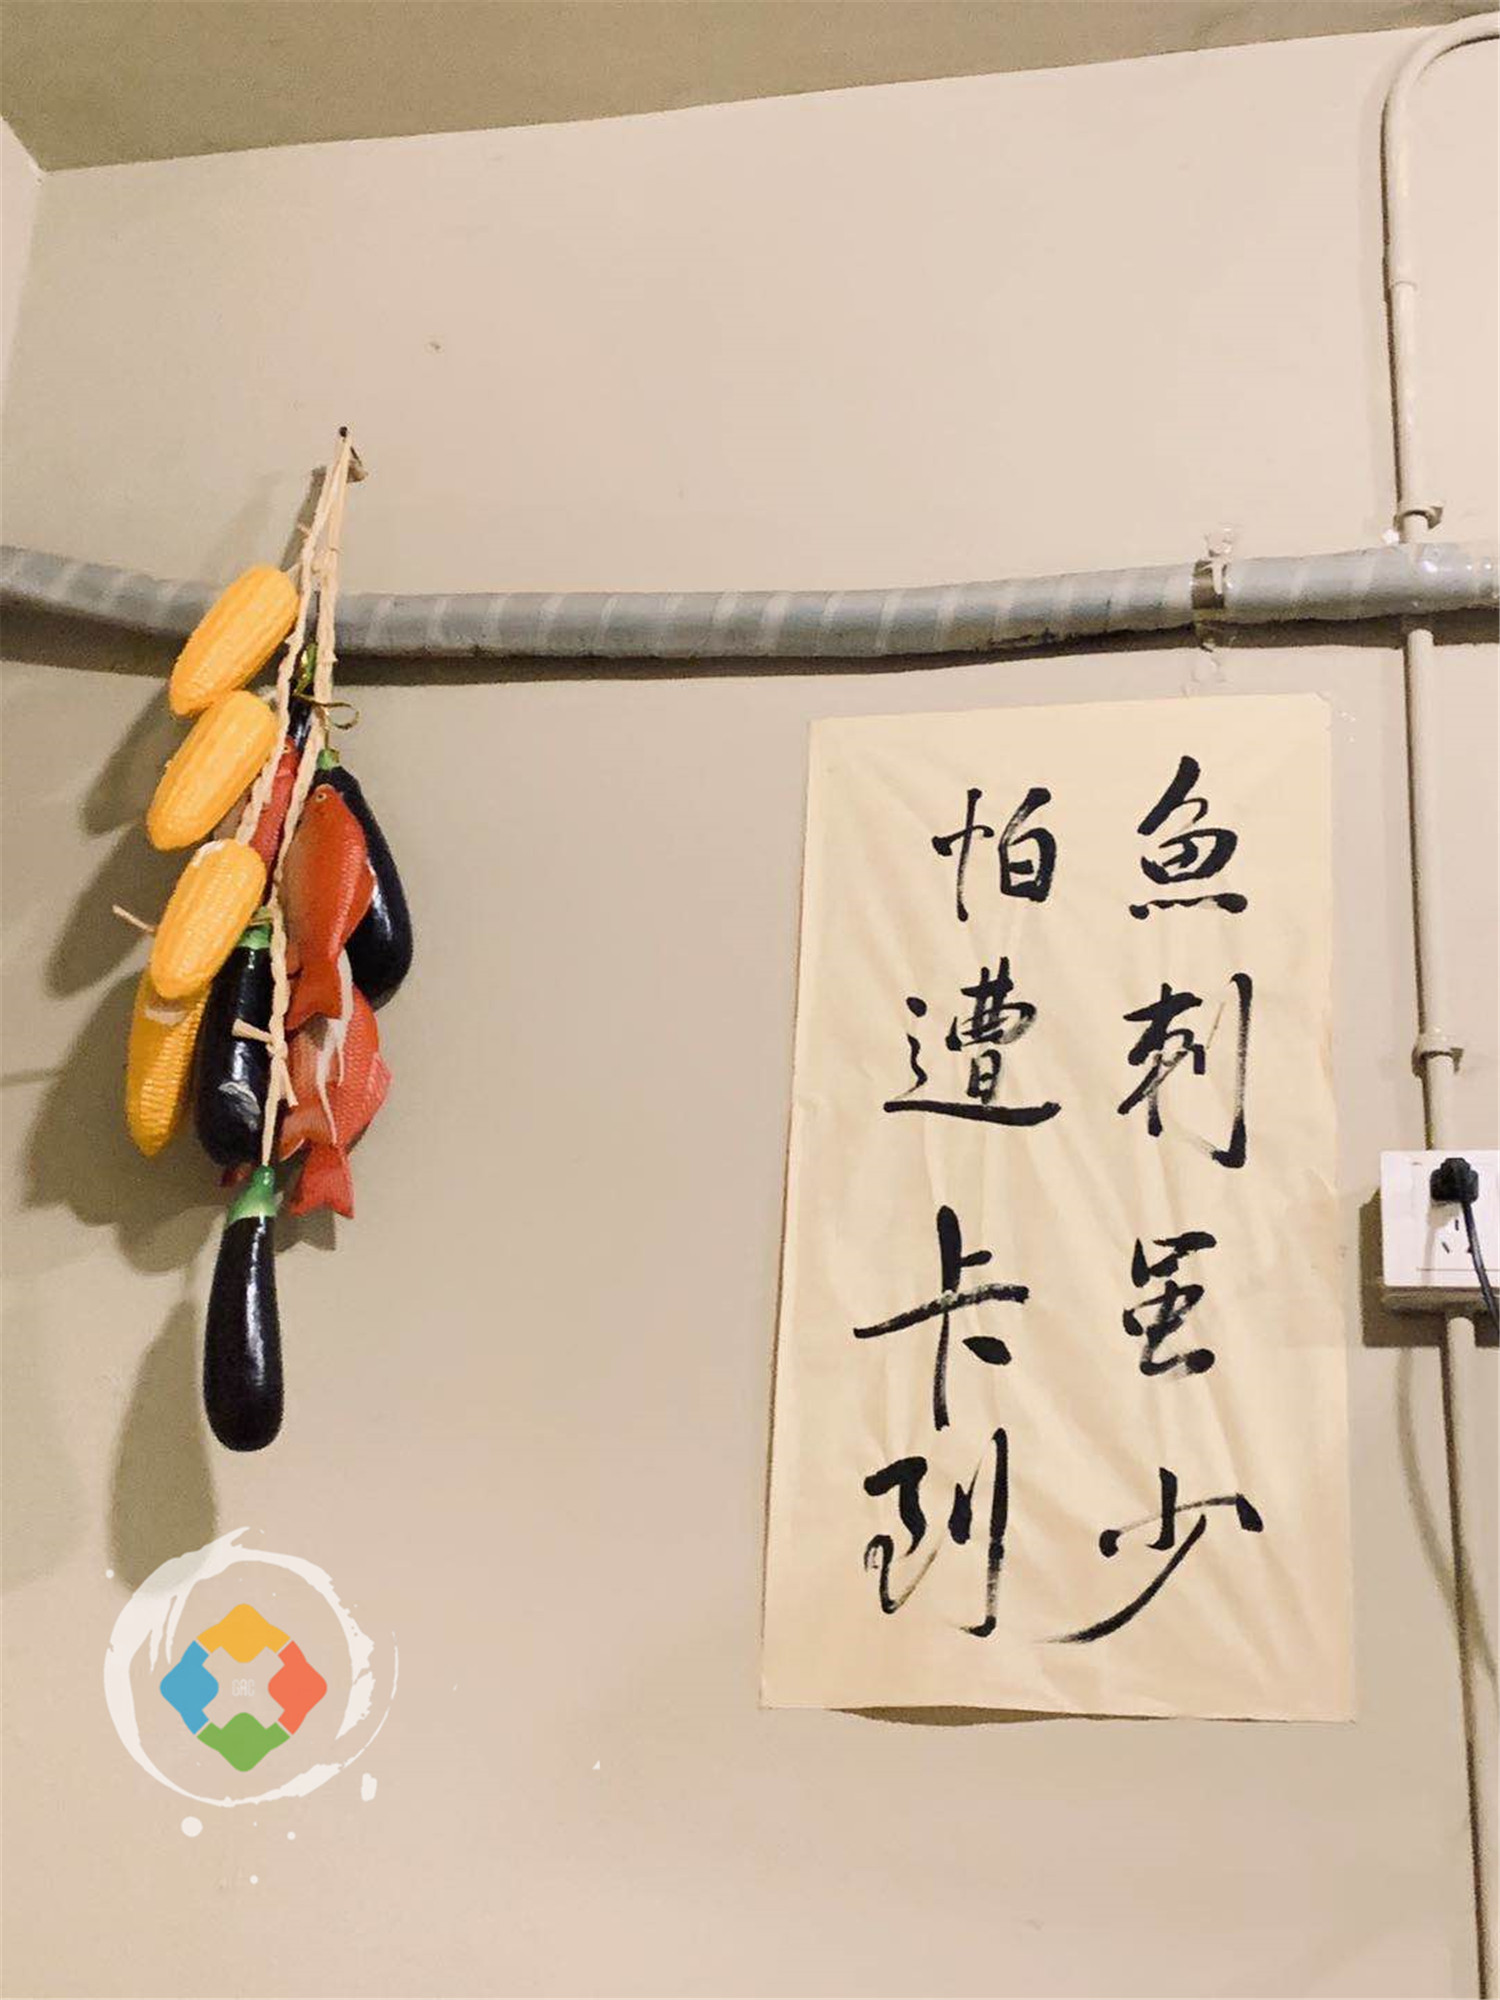 魚刺虽少
怕遭卡到
GRC